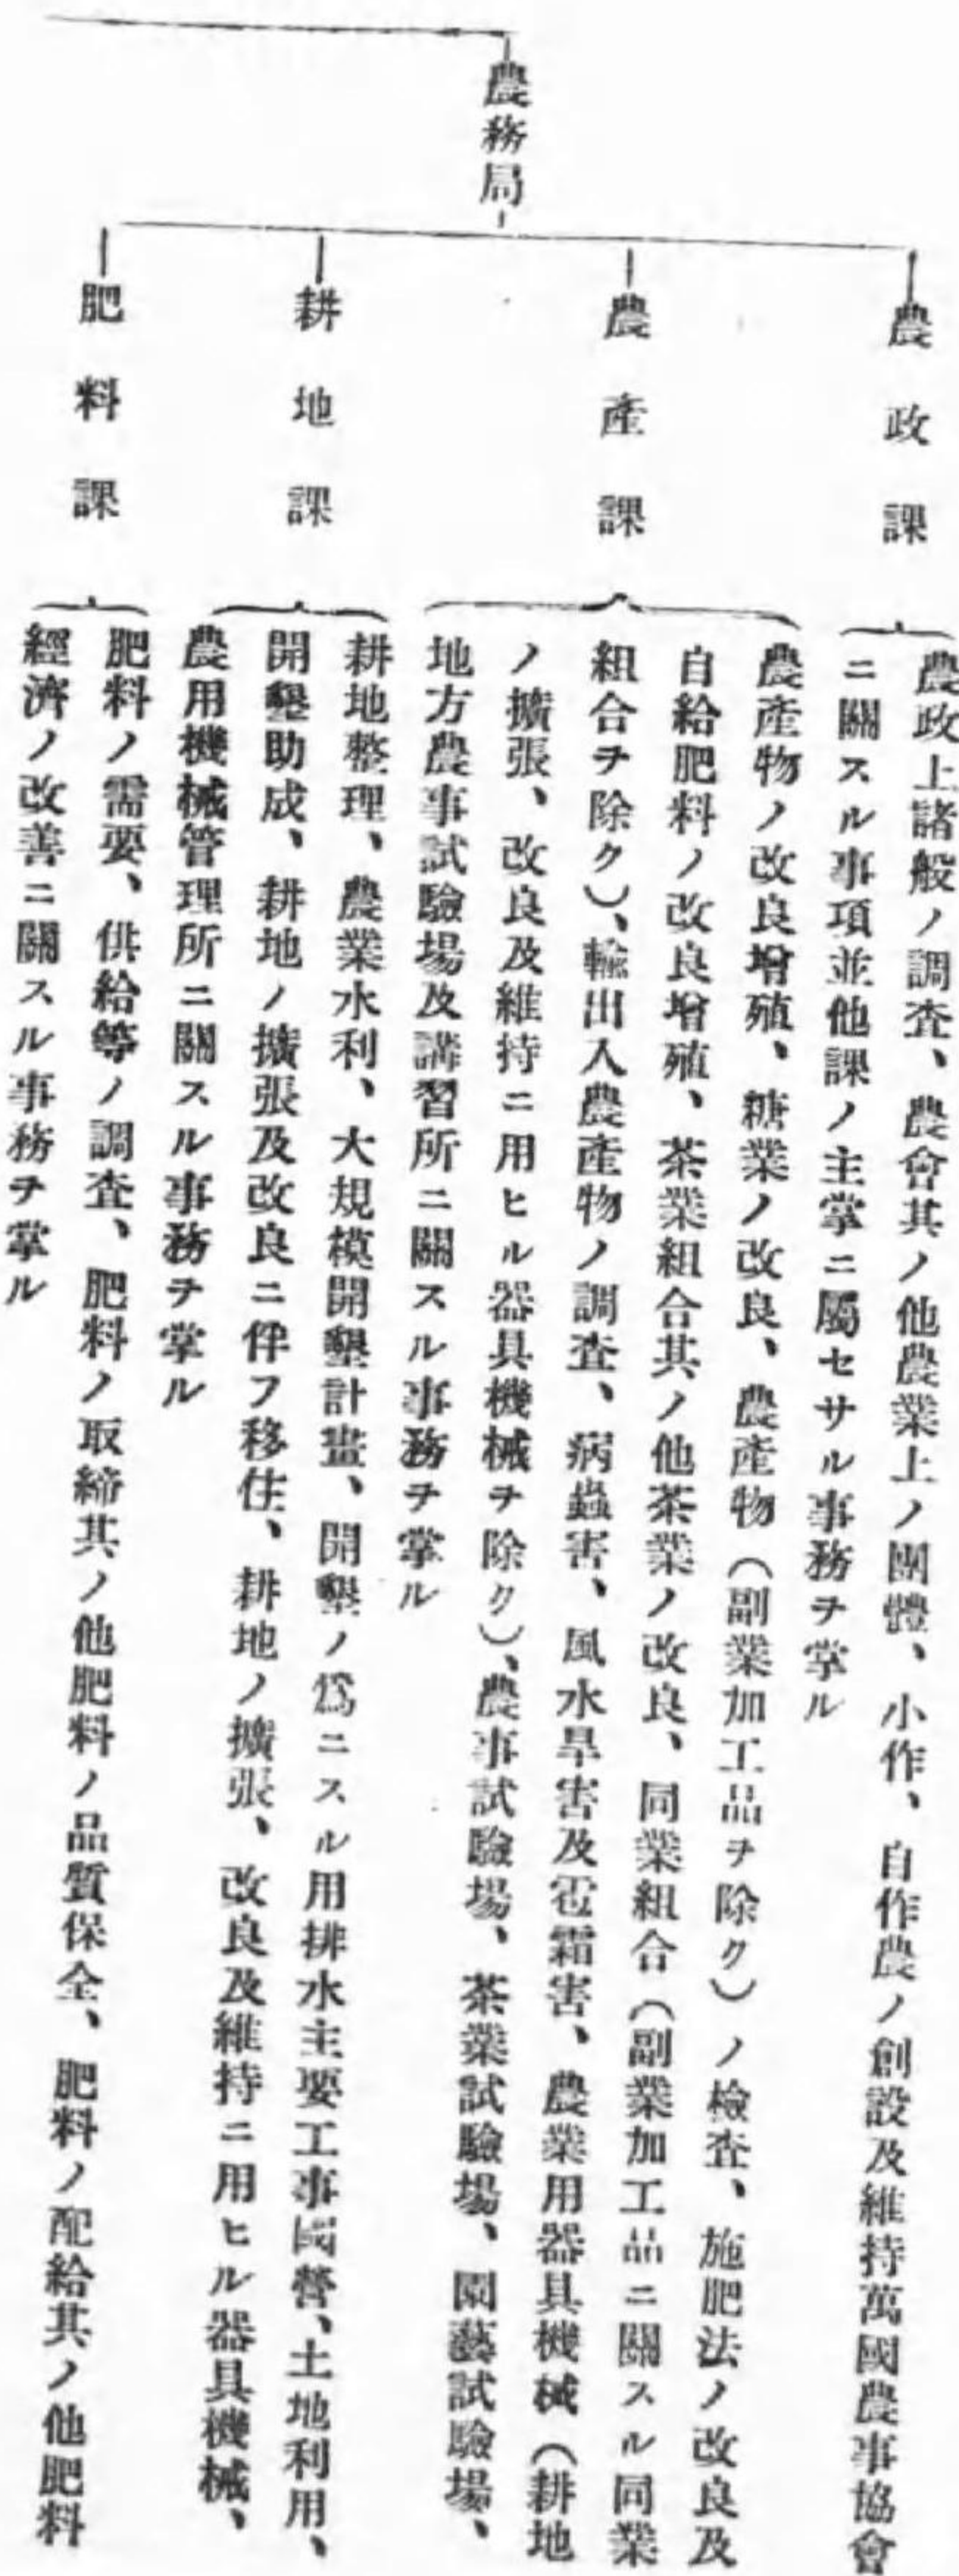 農務局
農政課
農政上諸般ノ調査、農會其ノ他農業上ノ團體、小作、自作農ノ創設及維持萬國農事協會
ニ關スル事項並他課ノ主掌ニ屬セサル事務ヲ掌ル
農產課
農產物ノ改良增殖、糖業ノ改良、農產物（副業加工品ヲ除ク）ノ檢査、施肥法ノ改良及
自給肥料ノ改良增殖、茶業組合其ノ他茶業ノ改良、同業組合（副業加工品ニ關スル同業
組合ヲ除ク）、輸出入農產物ノ調査、病蟲害、風水旱害及雹霜害、農業用器具機械（耕地
ノ擴張、改良及維持ニ用ヒル器具機械ヲ除ク）、農事試驗場、茶業試驗場、園藝試驗場、
地方農事試驗場及講習所ニ關スル事務ヲ掌ル
耕地課
耕地整理、農業水利、大規模開墾計畫、開墾ノ爲ニスル用排水主要工事國營、土地利用、
開墾助成、耕地ノ擴張及改良ニ伴フ移住、耕地ノ擴張、改良及維持ニ用ヒル器具機械、
農用機械管理所ニ關スル事務ヲ掌ル
肥料課
肥料ノ需要、供給等ノ調査、肥料ノ取締其ノ他肥料ノ品質保全、肥料ノ配給其ノ他肥料
經濟ノ改善ニ關スル事務ヲ掌ル